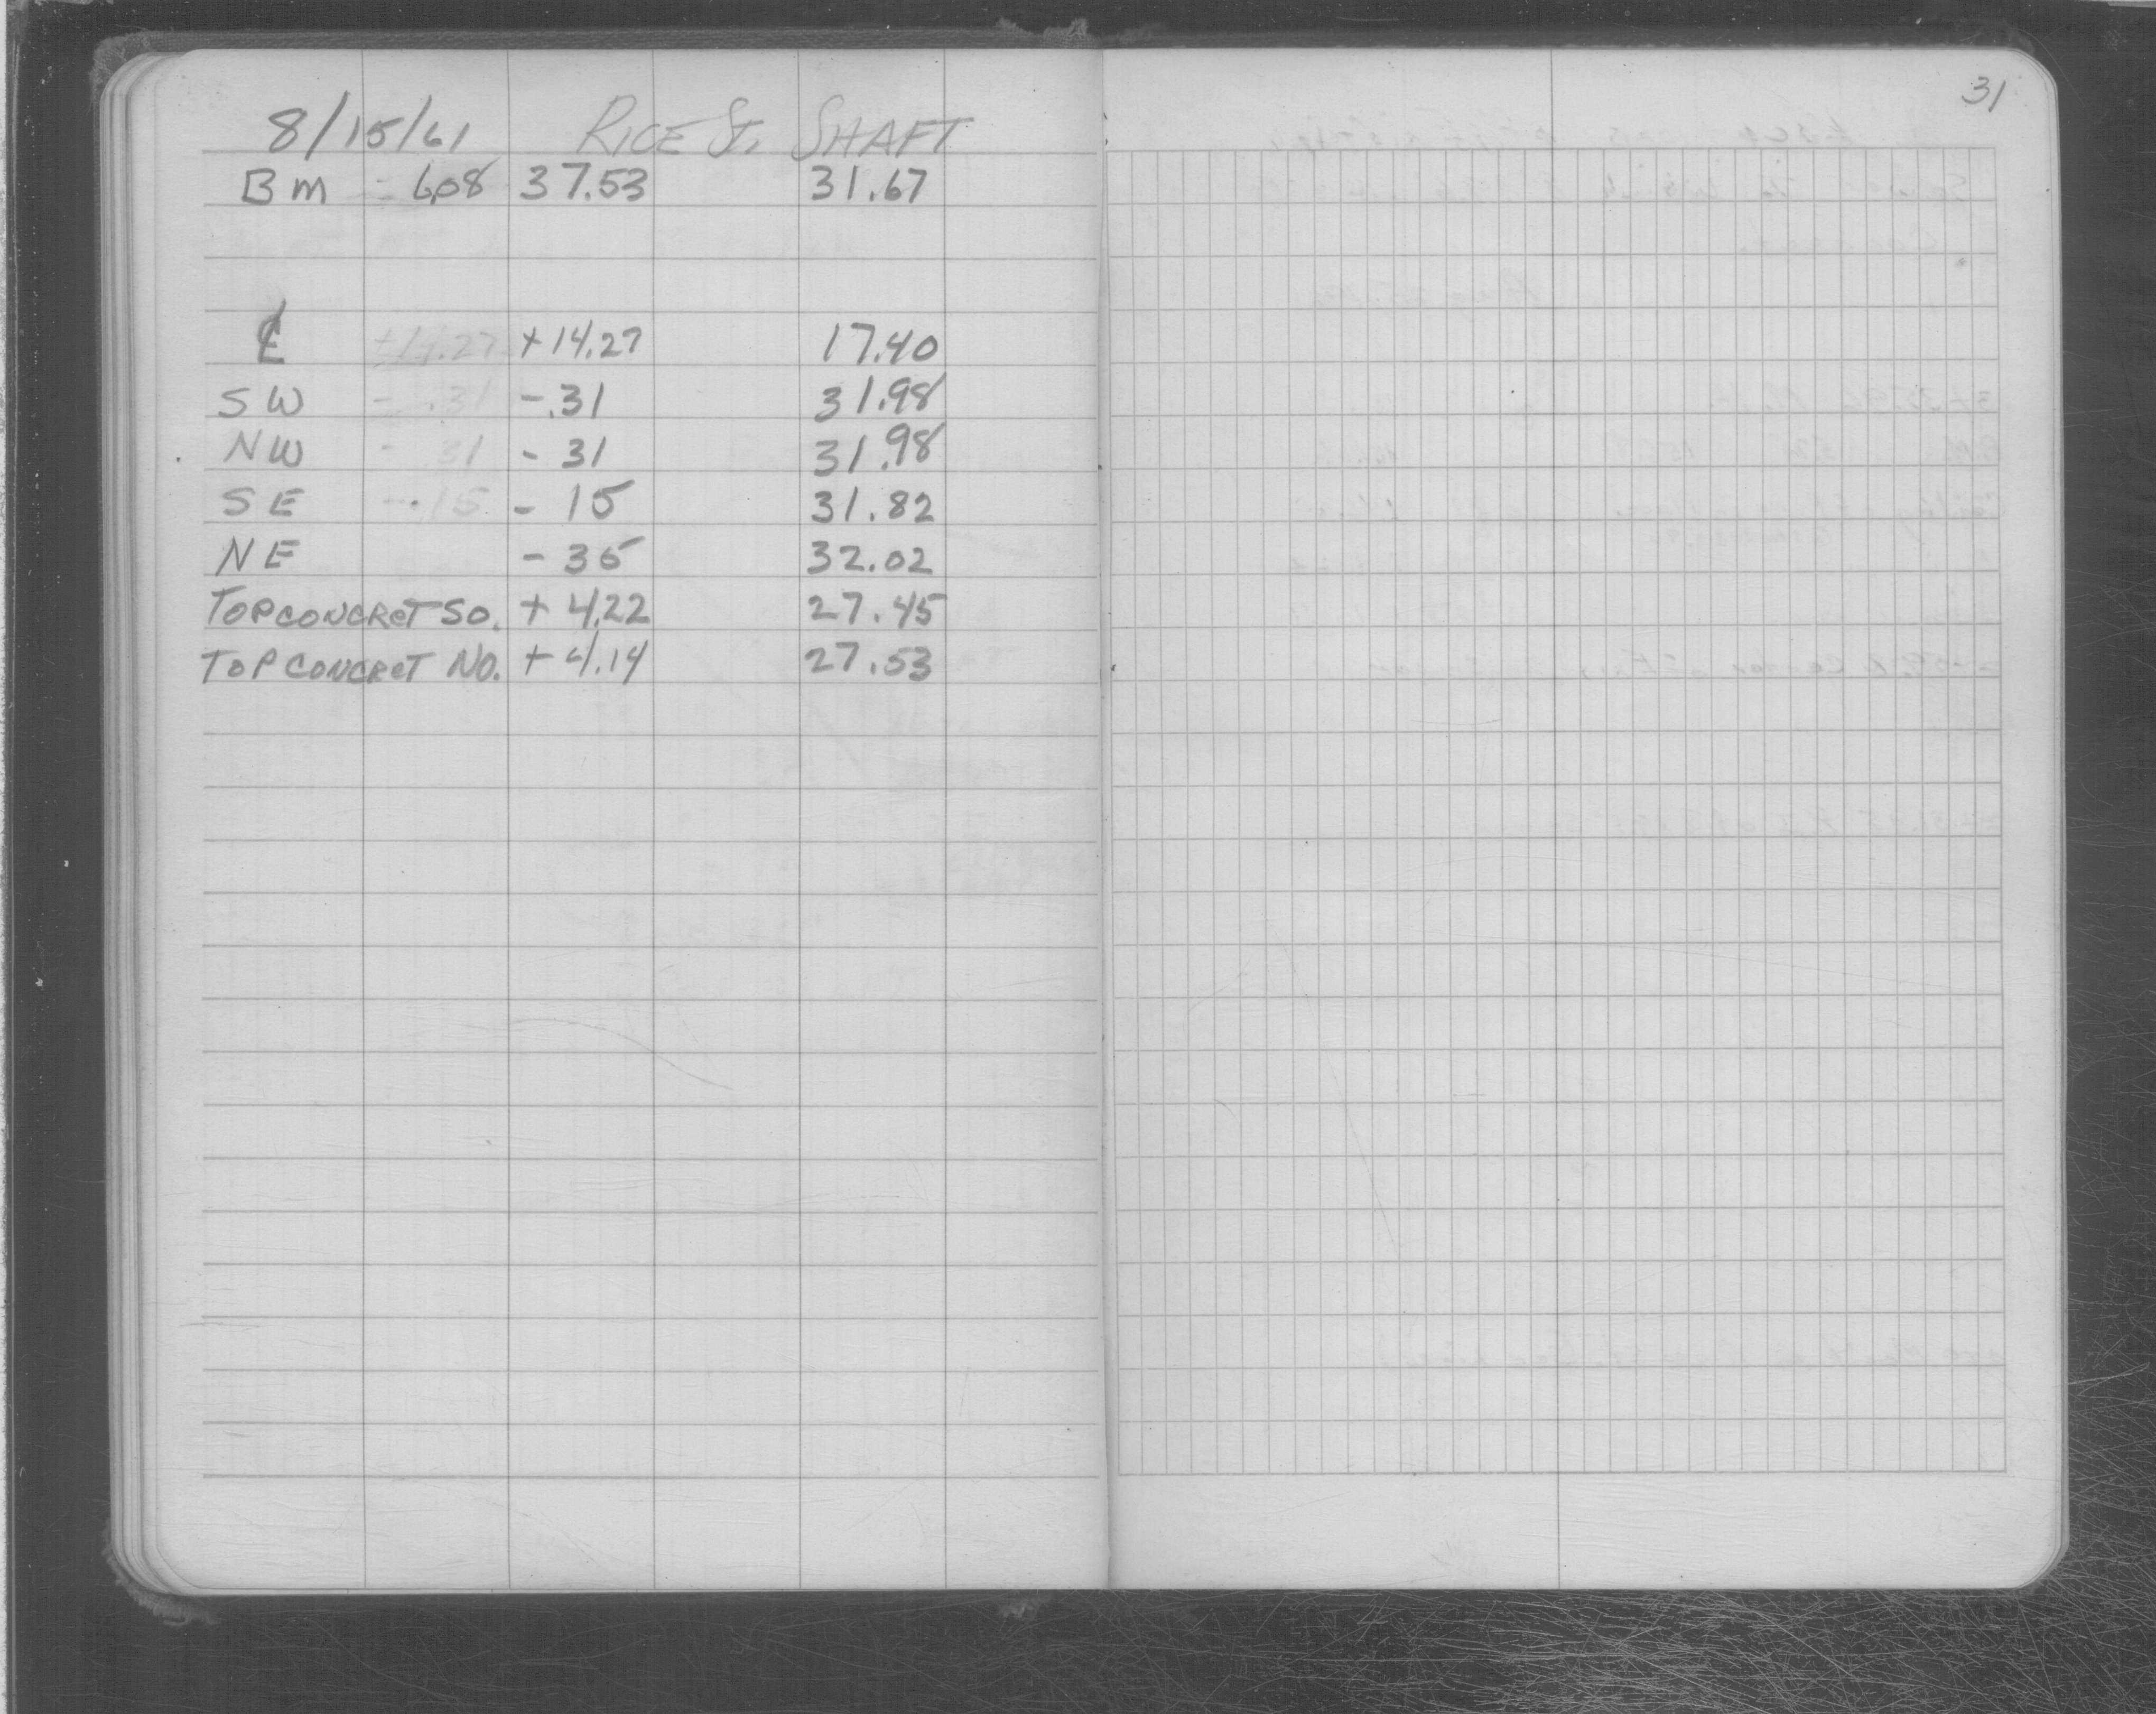 31
8/15/61 RICE St. SHAFT
BM - 6.08 37.53 31.67
℄ +14.27 +14.27 17.40
SW - .31 -.31 31.98
NW - 31 - 31 31.98
SE - .15 - 15 31.82
NE - 35 32.02
TOPCONCRET SO. + 4.22 27.45
TOP CONCRET NO. + 4.14 27.53